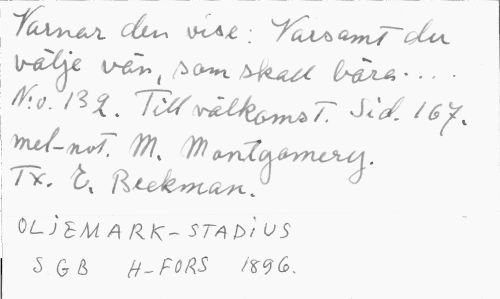 Varnar den vise: Varsamt du
välje vän, som skall bära....
N:o. 132. Till välkomst. Sid. 167.
mel-not. M. Montgomery.
Tx. E. Beckman.
OLJEMARK-STADIUS
S G B H-FORS 1896.